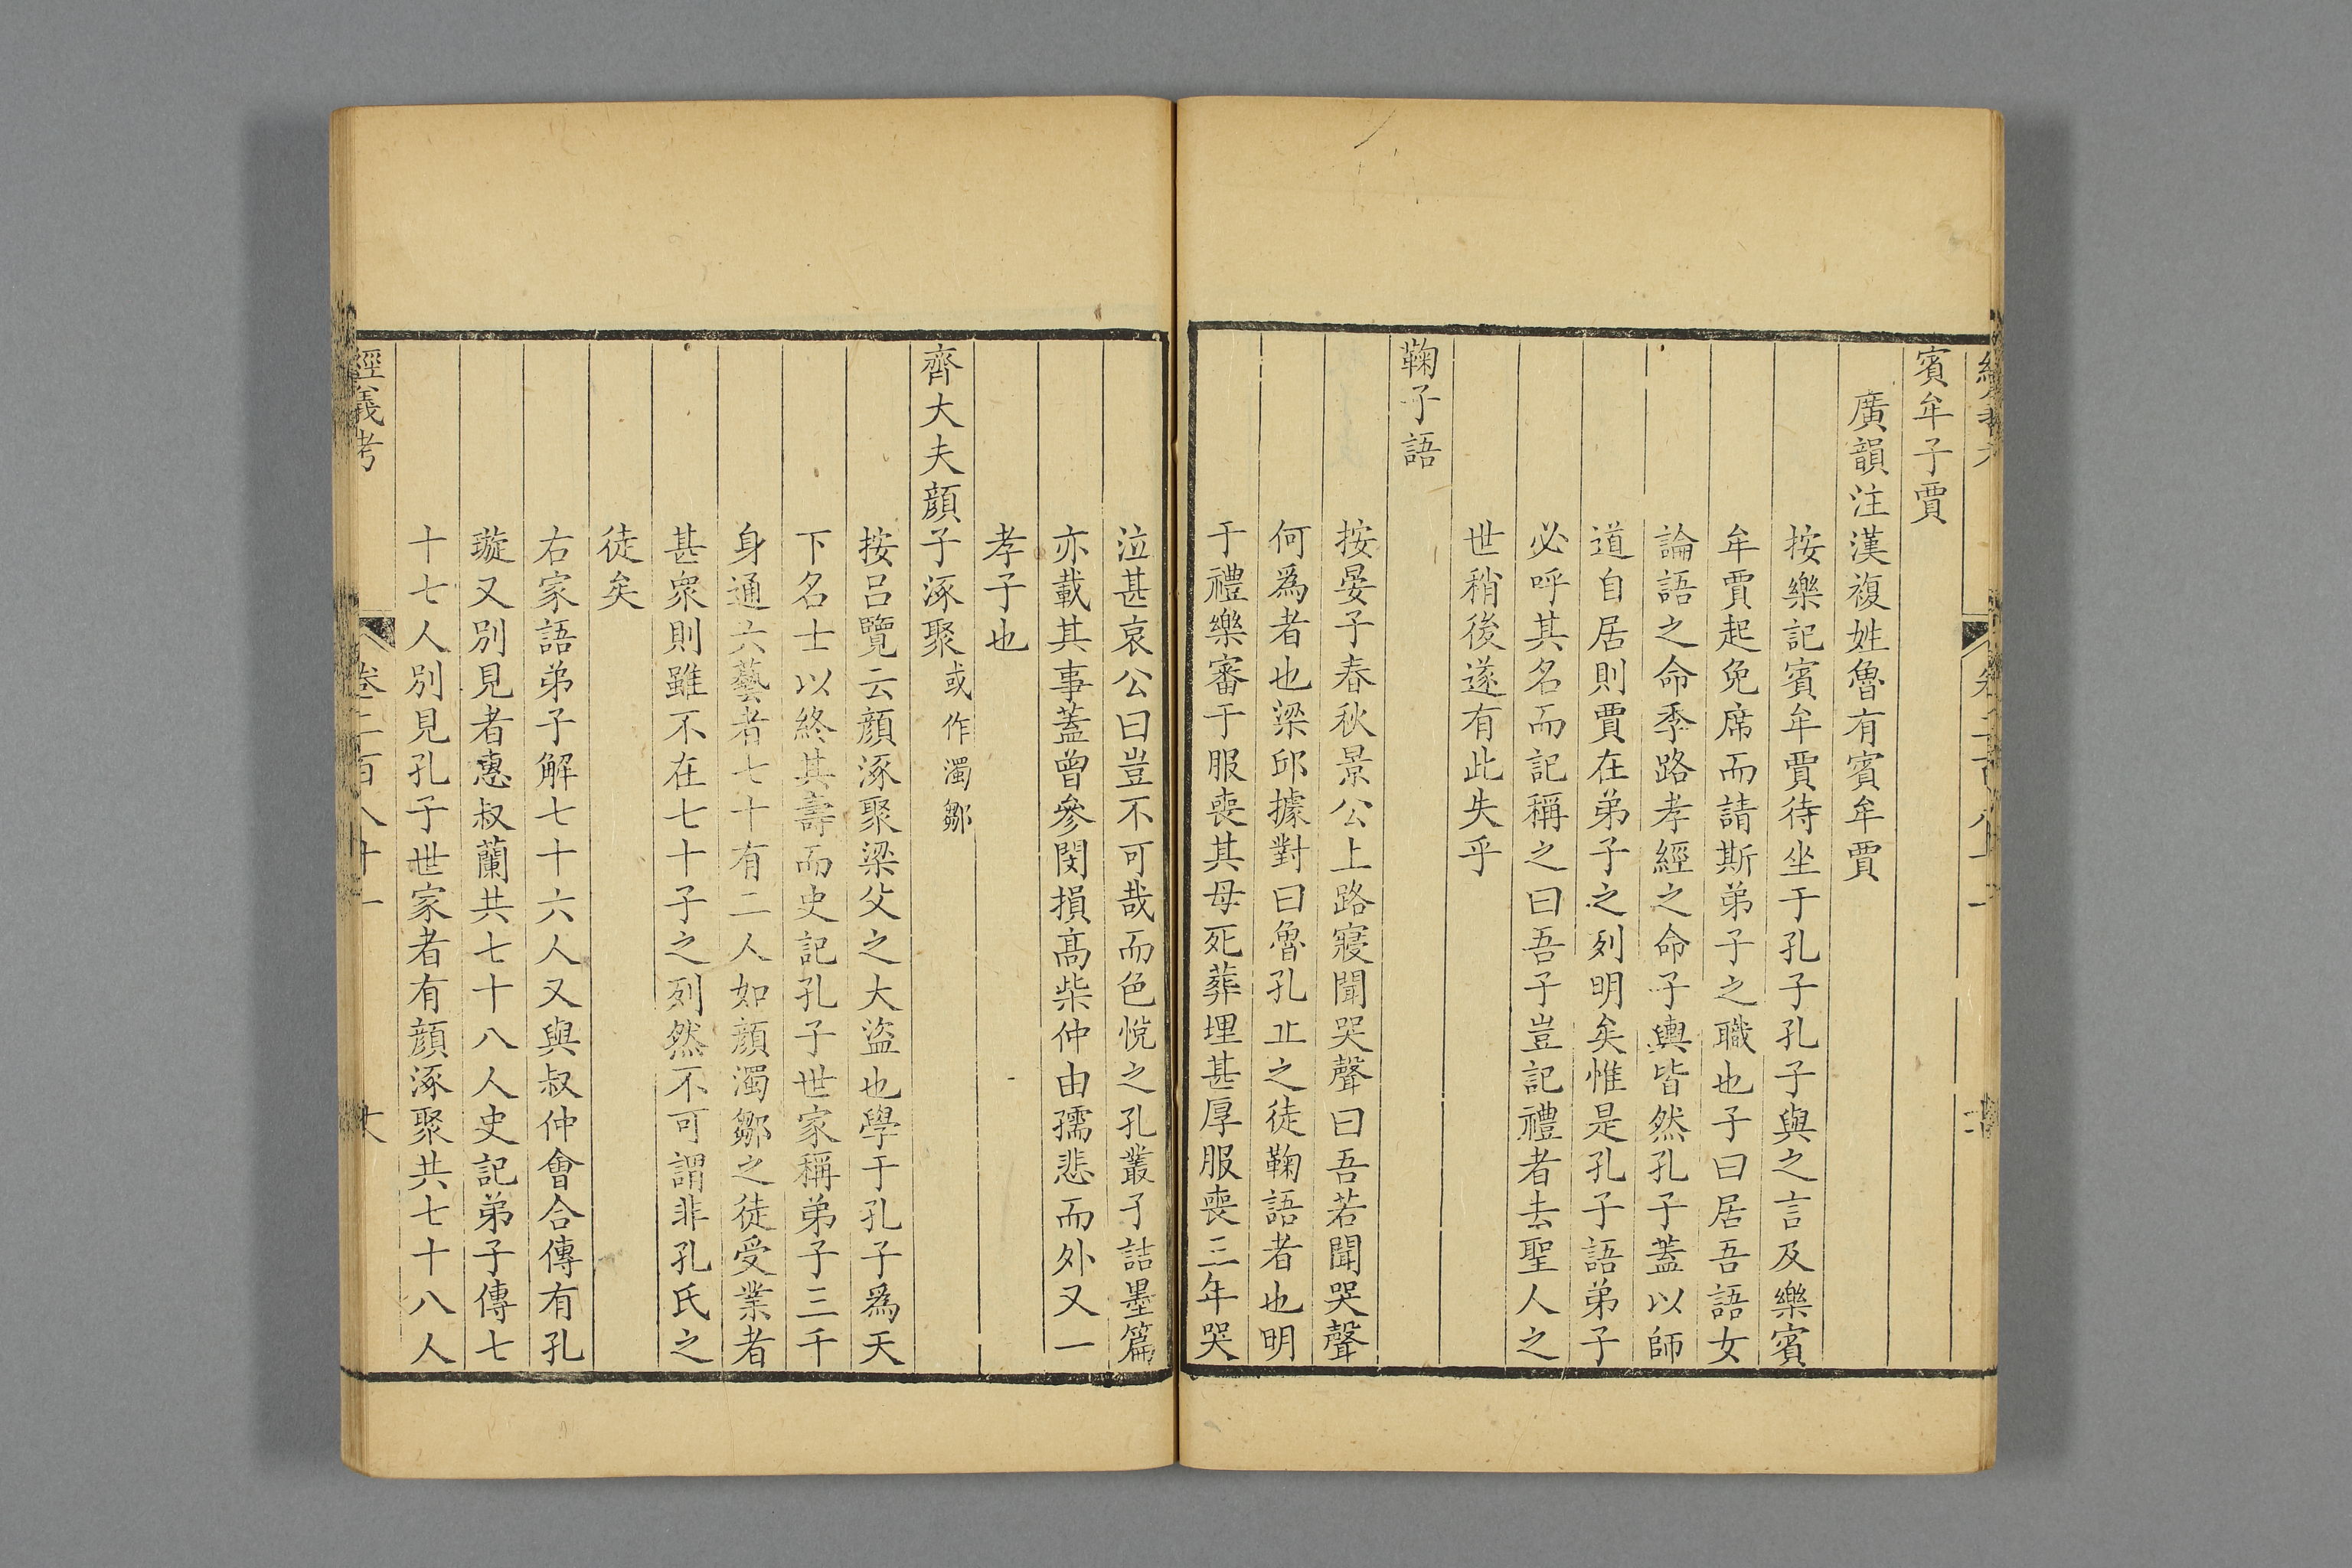 賓牟子賈
廣韻注漢複姓魯有賓牟賈
按樂記賓牟賈待坐于孔子孔子與之言及樂賓
牟賈起免席而請斯弟子之職也子曰居吾語女
論語之命季路孝經之命子輿皆然孔子蓋以師
道自居則賈在弟子之列明矣惟是孔子語弟子
必呼其名而記稱之曰吾子豈記禮者去聖人之
世稍後遂有此失乎
鞠子語
按晏子春秋景公上路寢聞哭聲曰吾若聞哭聲
何爲者也梁邱據對曰魯孔丠之徒鞠語者也明
于禮樂審于服喪其母死葬埋甚厚服喪三年哭
泣甚哀公曰豈不可哉而色悅之孔叢子詰墨篇
亦載其事蓋曾參閔損高柴仲由孺悲而外又一
孝子也
齊大夫顔子涿聚或作濁鄒
按呂覽云顔涿聚梁父之大盜也學于孔子爲天
下名士以終其壽而史記孔子世家稱弟子三千
身通六藝者七十有二人如顔濁鄒之徒受業者
甚衆則雖不在七十子之列然不可謂非孔氏之
徒矣
右家語弟子解七十六人又與叔仲會合傳有孔
璇又別見者惠叔蘭共七十八人史記弟子傳七
十七人別見孔子世家者有顔涿聚共七十八人
經義考
卷二百八十一